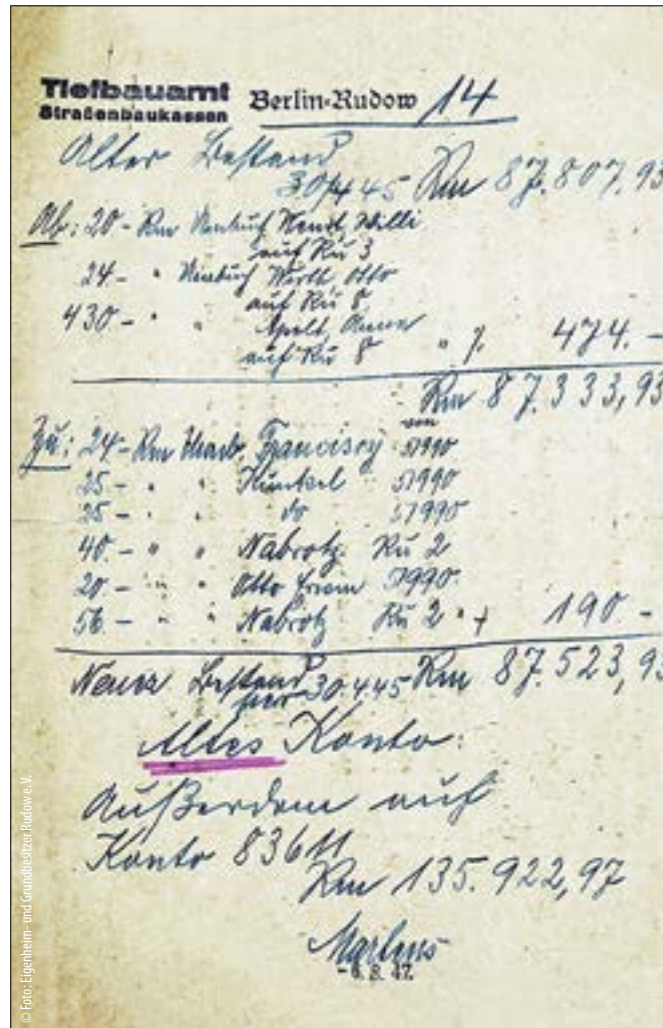 Tiefbauamt
Straßenbaukassen
Berlin-Rudow 14
Alter Bestand
30/4 45 Rm 87.807,93
Ab: 20.- Rm Wendt, Willi
auf Ru 3
24.- " Otto
auf Ru 8
430.- " " Apelt, Anna
auf Ru 8 " ./. 474.-
Rm 87.333,93
von
Zu: 24.- Rm 51990
25.- " " Künkel 51990
25.- " " do 51990
40.- " " Nabrotz Ru 2
20.- " " Otto Erwin 51990
56.- " " Nabrotz Ru 2 " + 190.-
Neuer Bestand
per 30.4 45 Rm 87.523,93
Altes Konto:
Außerdem auf
Konto 83611
Rm 135.922,97
Martens
- 6. 8. 47.
© Foto: Eigenheim- und Grundbesitzer Rudow e.V.